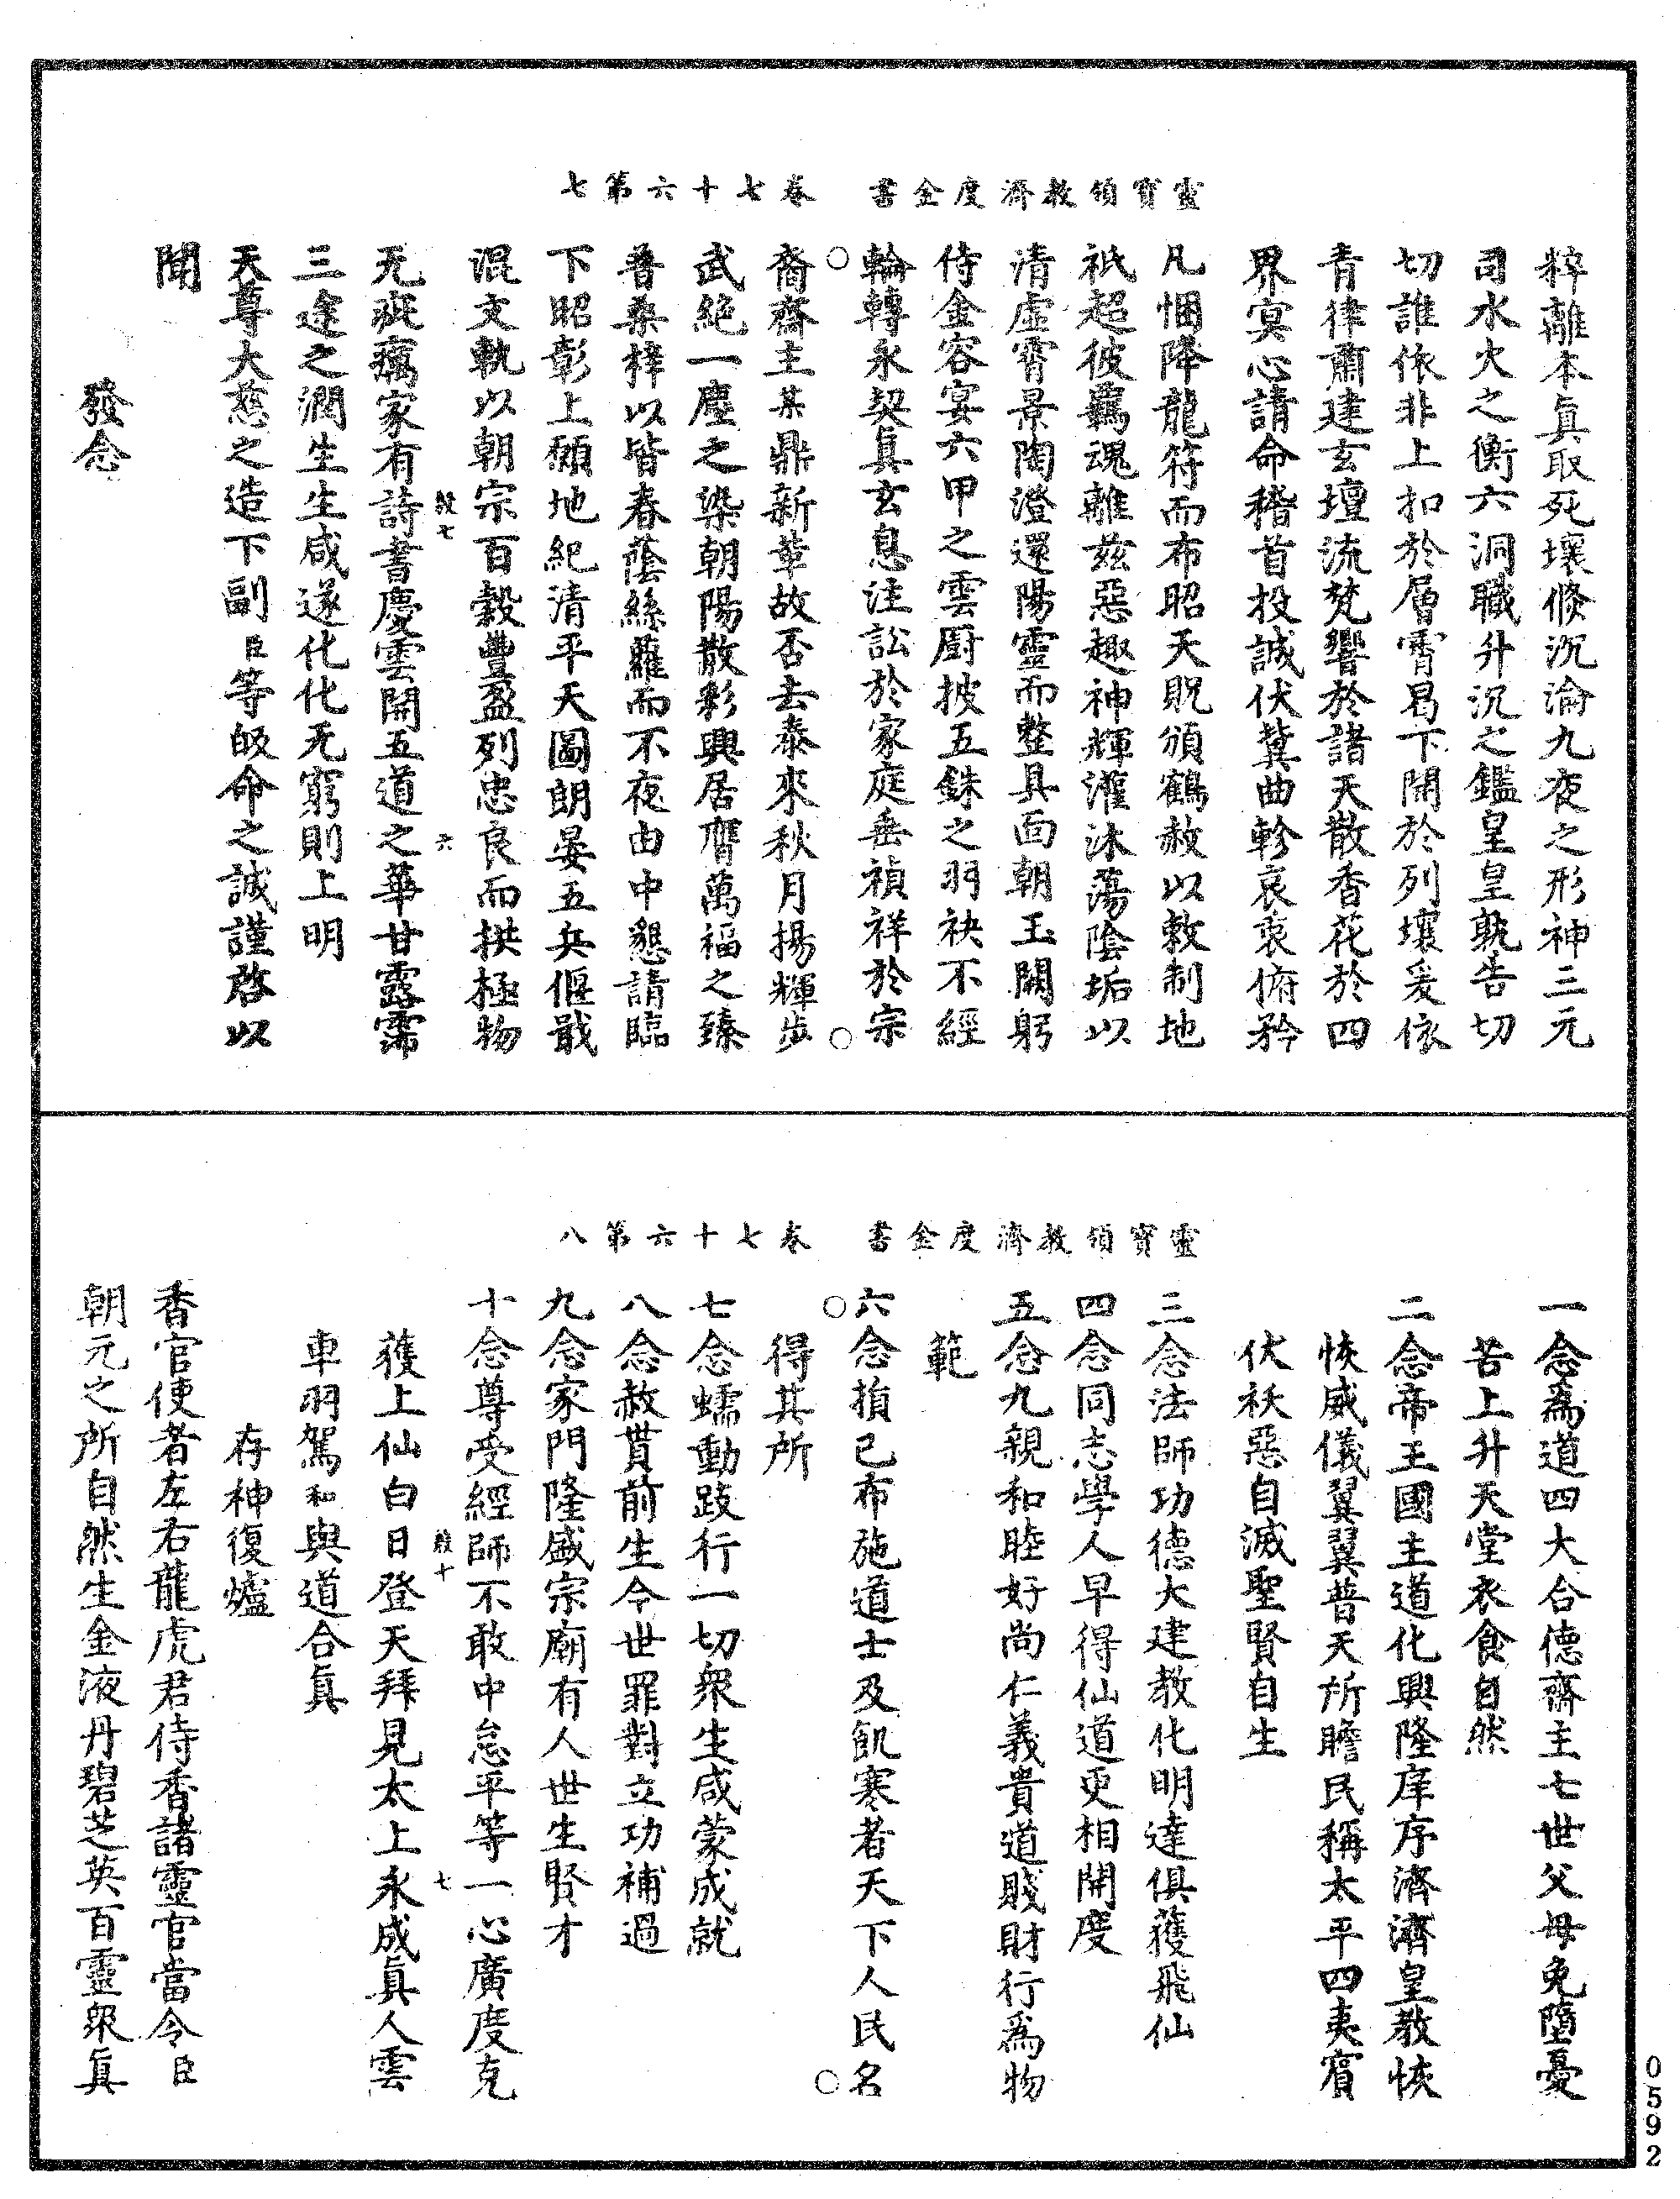 靈寶領教濟度金書　卷七十六第七
粹離本眞取死壞倏沉淪九夜之形神三元
司水火之衡六洞職升沉之鑑皇皇孰告切
切誰依非上扣於層霄曷下開於列壤爰依
青律肅建玄壇流梵響於諸天散香花於四
界寅心請命稽首投誠伏冀曲軫哀衷俯矜
凡悃降龍符而布昭天貺頒鶴赦以敕制地
祇超彼羈魂離兹惡趣神輝濯沐蕩陰垢以
清虛霄景陶澄還陽靈而整具面朝玉闕躬
侍金容宴六甲之雲厨披五銖之羽袂不經
輪轉永契眞玄息注訟於家庭垂禎祥於宗
裔齋主某鼎新革故否去泰來秋月揚輝步
武絶一塵之染朝陽散彩興居膺萬福之臻
普桑梓以皆春蔭絲蘿而不夜由中懇請臨
下昭彰上願地紀清平天圖朗晏五兵偃戢
混文軌以朝宗百穀豐盈列忠良而拱極物
无疵癘家有詩書慶雲開五道之華甘露霈
三途之潤生生咸遂化化无窮則上明
天尊大慈之造下副臣等皈命之誠謹啓以
聞
發念
靈寶領教濟度金書　卷七十六第八
一念爲道四大合德齋主七世父母免墮憂
苦上升天堂衣食自然
二念帝王國主道化興隆庠序濟濟皇教恢
恢威儀翼翼普天所瞻民稱太平四夷賓
伏袄惡自滅聖賢自生
三念法師功德大建教化明達俱獲飛仙
四念同志學人早得仙道更相開度
五念九親和睦好尚仁義貴道賤財行爲物
範
六念損己布施道士及飢寒者天下人民名
得其所
七念蠕動跂行一切衆生咸蒙成就
八念赦貰前生今世罪對立功補過
九念家門隆盛宗廟有人世生賢才
十念尊受經師不敢中怠平等一心廣度克
獲上仙白日登天拜見太上永成眞人雲
車羽駕和與道合眞
存神復爐
香官使者左右龍虎君侍香諸靈官當令臣
朝元之所自然生金液丹碧芝英百靈衆眞
0592